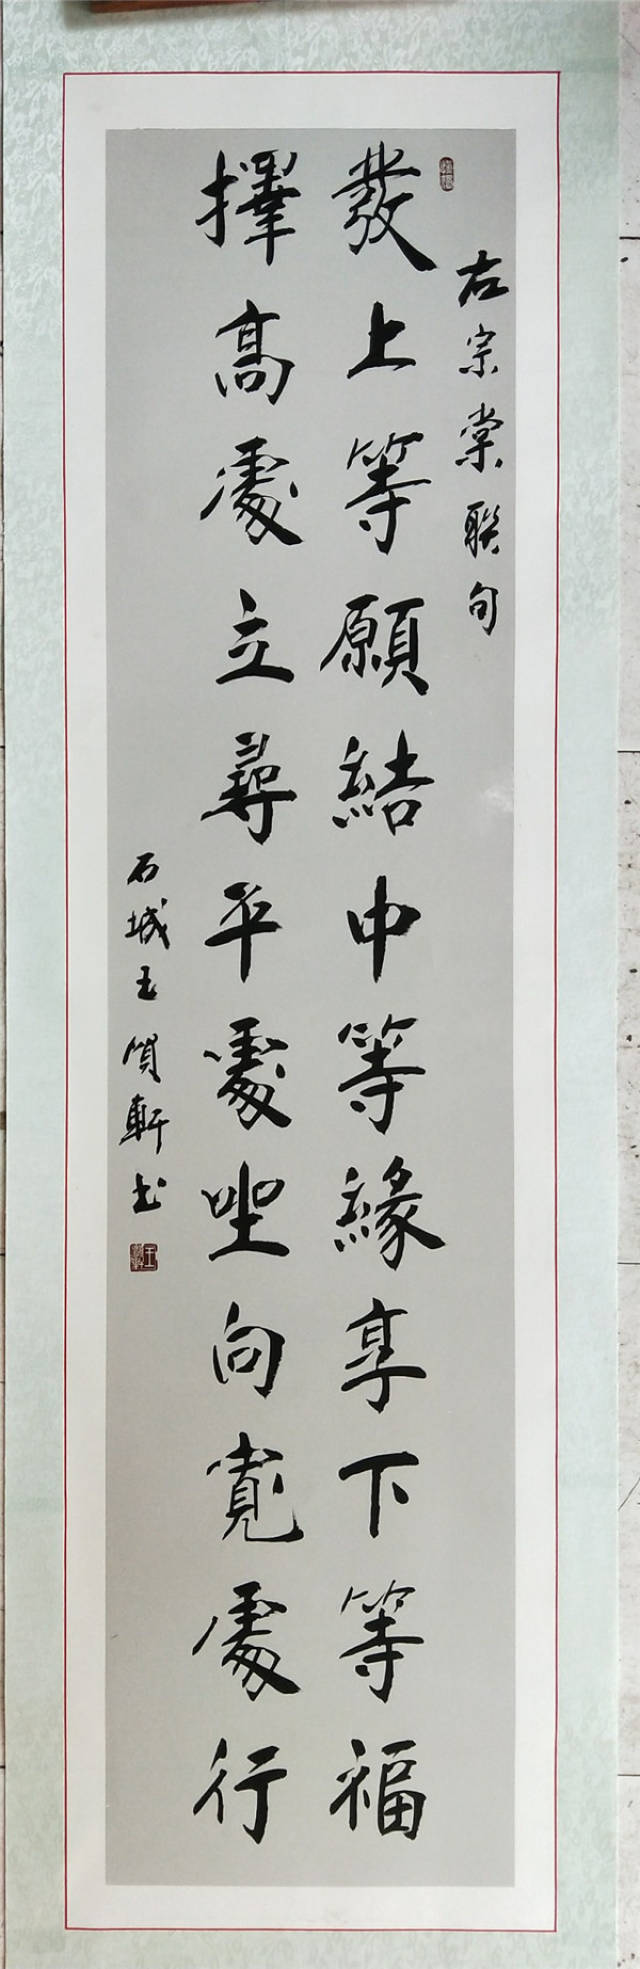 左宗棠聯句
發上等願結中等緣享下等福
擇高處立尋平處坐向寬處行
石城玉質軒書